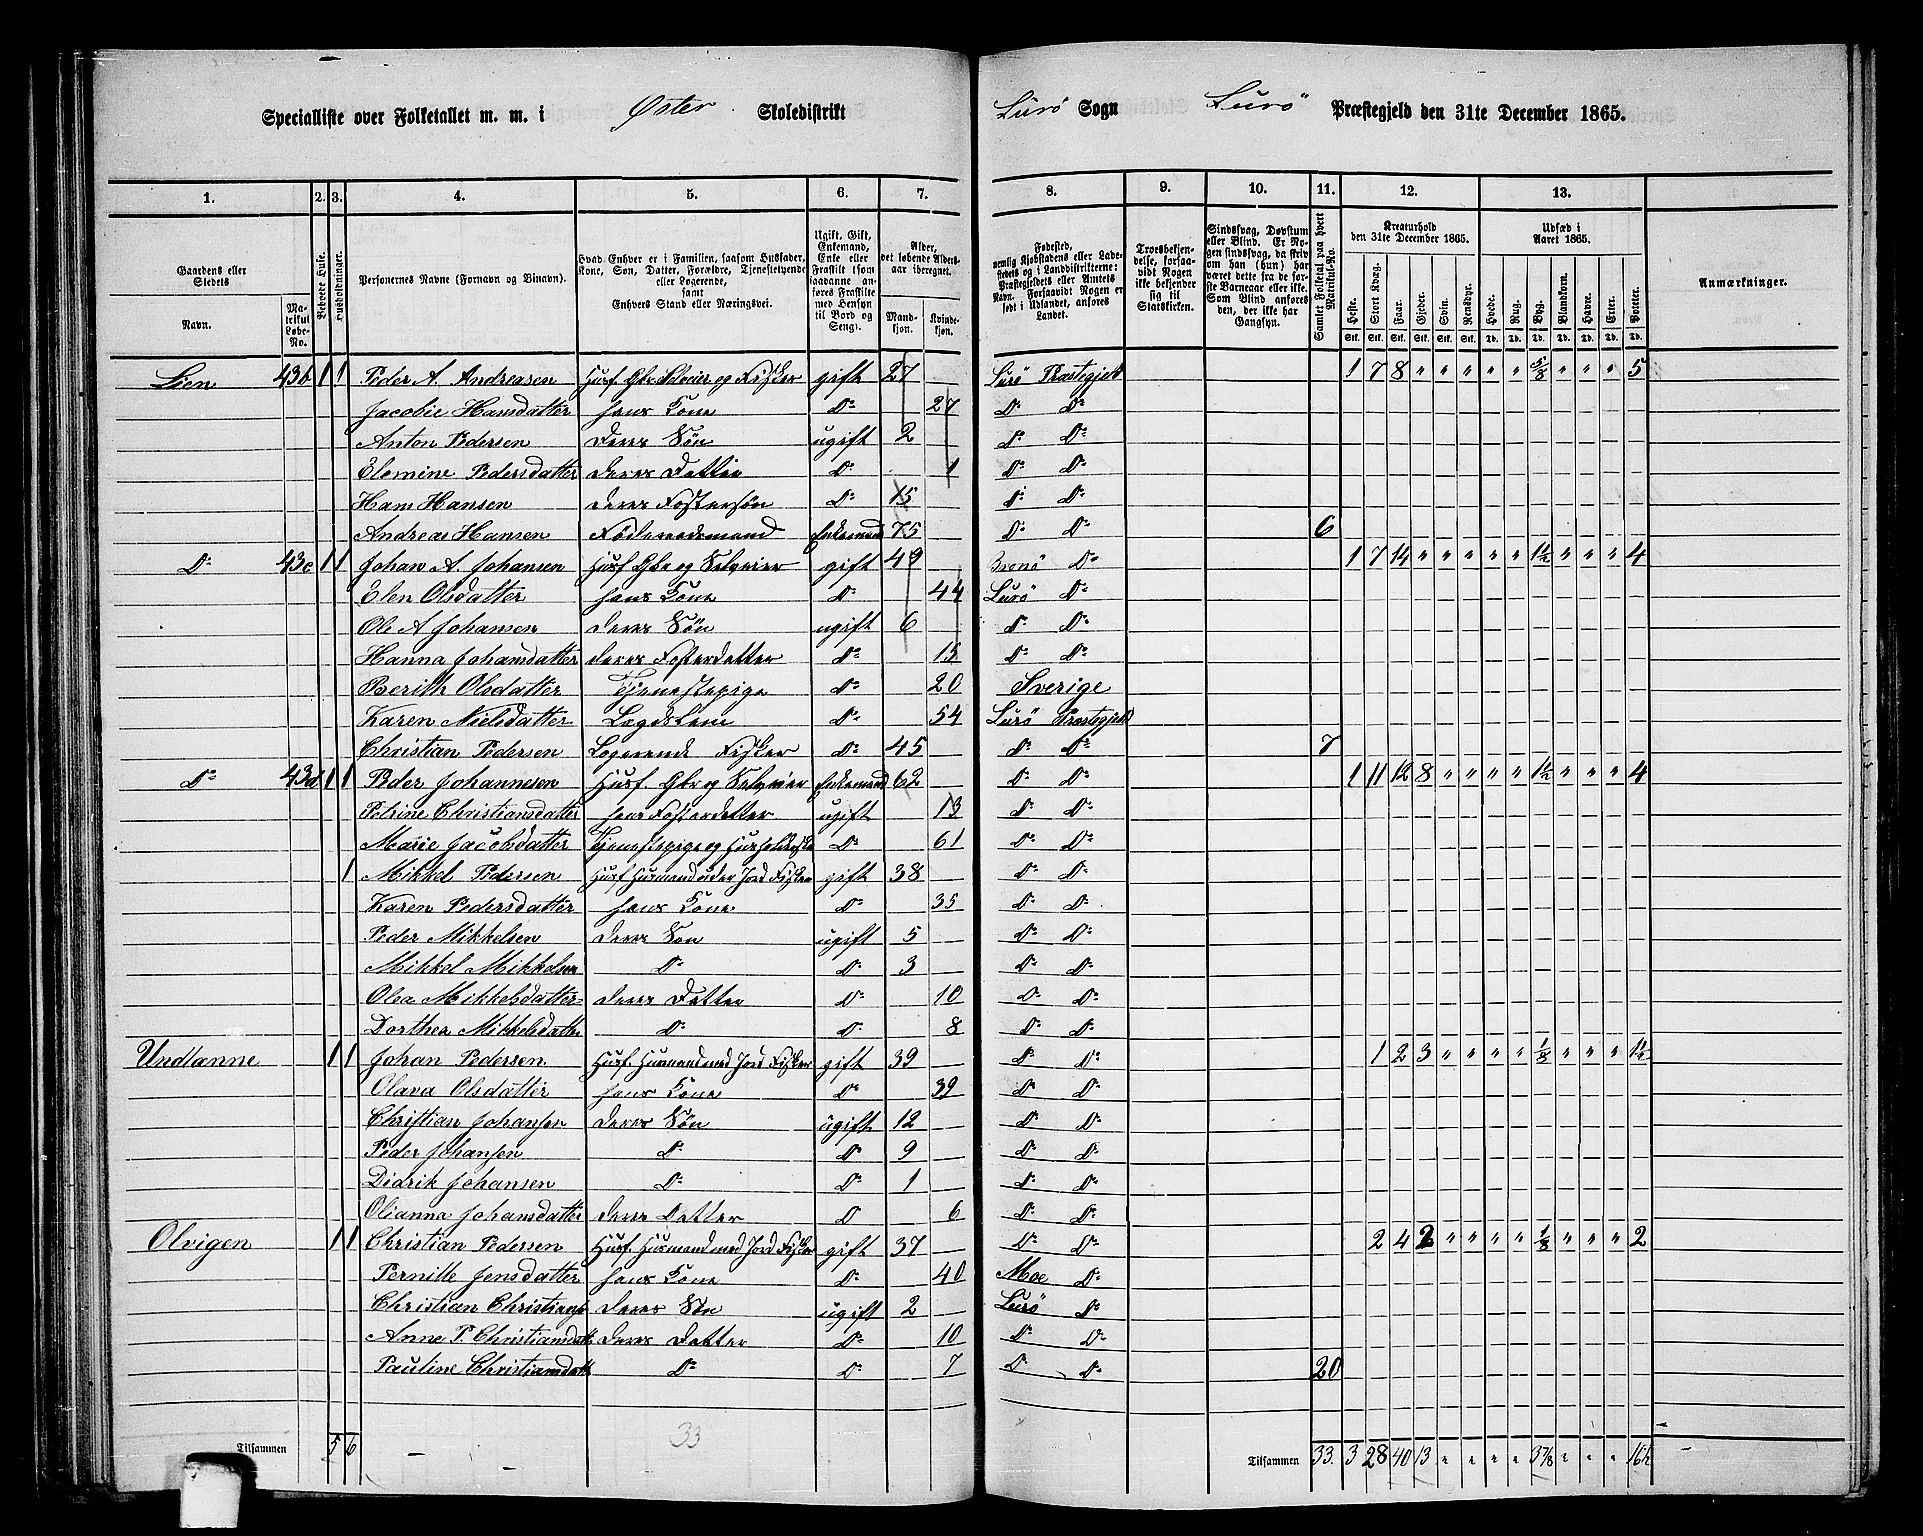 Specialliste over Folketallet m. m. i Øster Skoledistrikt Lurø Sogn Lurø Præstegjeld den 31te December 1865.
1. 2. 3. 4. 5. 6. 7. 8. 9. 10. 11. 12. 13.
Gaardens eller Stedets Navn. Matrikul Løbe-No. Beboede Huse. Husholdninger. Personernes Navne (Fornavn og Binavn). Hvad Enhver er i Familien, saasom Husfader, Kone, Søn, Datter, Forældre, Tjenestetyende eller Logerende, samt Enhvers Stand eller Næringsvei. Ugift, Gift, Enkemand, Enke eller Fraskilt (som saadanne anføres Fraskilte med Hensyn til Bord og Seng). Alder, det løbende Alders-aar iberegnet. Mandkjøn. Kvindekjøn. Fødested, nemlig Kjøbstadens eller Ladestedets og i Landdistrikterne: Præstegjeldets eller Amtets Navn. Forsaavidt Nogen er født i Udlandet, anføres Landet. Troesbekjendelse, forsaavidt Nogen ikke bekjender sig til Statskirken. Sindssvag, Døvstum eller Blind. Er Nogen sindssvag, da skriv om han (hun) har været dette fra de første Barneaar eller ikke. Som Blind anføres den, der ikke har Gangsyn. Samlet Folketal paa hvert Matrikul-No. Kreaturhold den 31te December 1865. Heste. Stort Kvæg. Faar. Gjeder. Svin. Rensdyr. Udsæd i Aaret 1865. Hvede. Rug. Byg. Blandkorn. Havre. Erter. Poteter. Anmærkninger.
Lien 43b 1 1 Peder A. Andreasen Husf. Gbr. Selveier og Fisker gift 27 Lurø Præstegjeld 1 7 8 " " " " " 5/8 " " " 5
Jacobie Hansdatter hans Kone Do 27 Do Do
Anton Pedersen deres Søn ugift 2 Do Do
Elomine Pedersdatter deres Datter Do 1 Do Do
Hans Hansen deres Fostersøn Do 15 Do Do
Andreas Hansen Føderaadsmand Enkemand 75 Do Do 6
Do 43c 1 1 Johan A. Johansen Husf. Gbr og Selveier gift 49 Brønø Do 1 7 14 " " " " " 1½ " " " 4
Elen Olsdatter hans Kone Do 44 Lurø Do
Ole A Johansen deres Søn ugift 6 Do Do
Hanna Johansdatter deres Fosterdatter Do 15 Do Do
Berith Olsdatter Tjenestepige Do 20 Sverige
Karen Nielsdatter Lægdslem Do 54 Lurø Præstegjeld
Christian Pedersen Logerende Fisker Do 45 Do Do 7
Do 43d 1 1 Peder Johannesen Husf. Gbr og Selveier Enkemand 62 Do Do 1 11 12 8 " " " " 1½ " " " 4
Petrine Christiansdatter hans Fosterdatter ugift 13 Do Do
Marie Jacobsdatter Tjenestepige og Husholderske Do 61 Do Do
1 Mikkel Pedersen Husf Husmand uden Jord Fisker gift 38 Do Do
Karen Pedersdatter hans Kone Do 35 Do Do
Peder Mikkelsen deres Søn ugift 5 Do Do
Mikkel Mikkelsen Do Do 3 Do Do
Olea Mikkelsdatter deres Datter Do 10 Do Do
Dorthea Mikkelsdatter Do Do 8 Do Do
Undlanne 1 1 Johan Pedersen Husf. Husmand med Jord Fisker gift 39 Do Do 1 2 3 " " " " 1/8 " " " 1½
Olava Olsdatter hans Kone Do 39 Do Do
Christian Johansen deres Søn ugift 12 Do Do
Peder Johansen Do Do 9 Do Do
Didrik Johansen Do Do 1 Do Do
Olianna Johansdatter deres Datter Do 6 Do Do
Olvigen 1 1 Christian Pedersen Husf. Husmand med Jord Fisker gift 37 Do Do 2 4 2 " " " " 1/8 " " " 2
Pernille Jensdatter hans Kone Do 40 Moe Do
Christian Christians deres Søn ugift 2 Lurø Do
Anne P. Christiansdatt deres Datter Do 10 Do Do
Pauline Christiansdatt Do Do 7 Do Do 20
33
Tilsammen 5 6 Tilsammen 33. 3 28 40 13 " " " " 3⅞ " " " 16½